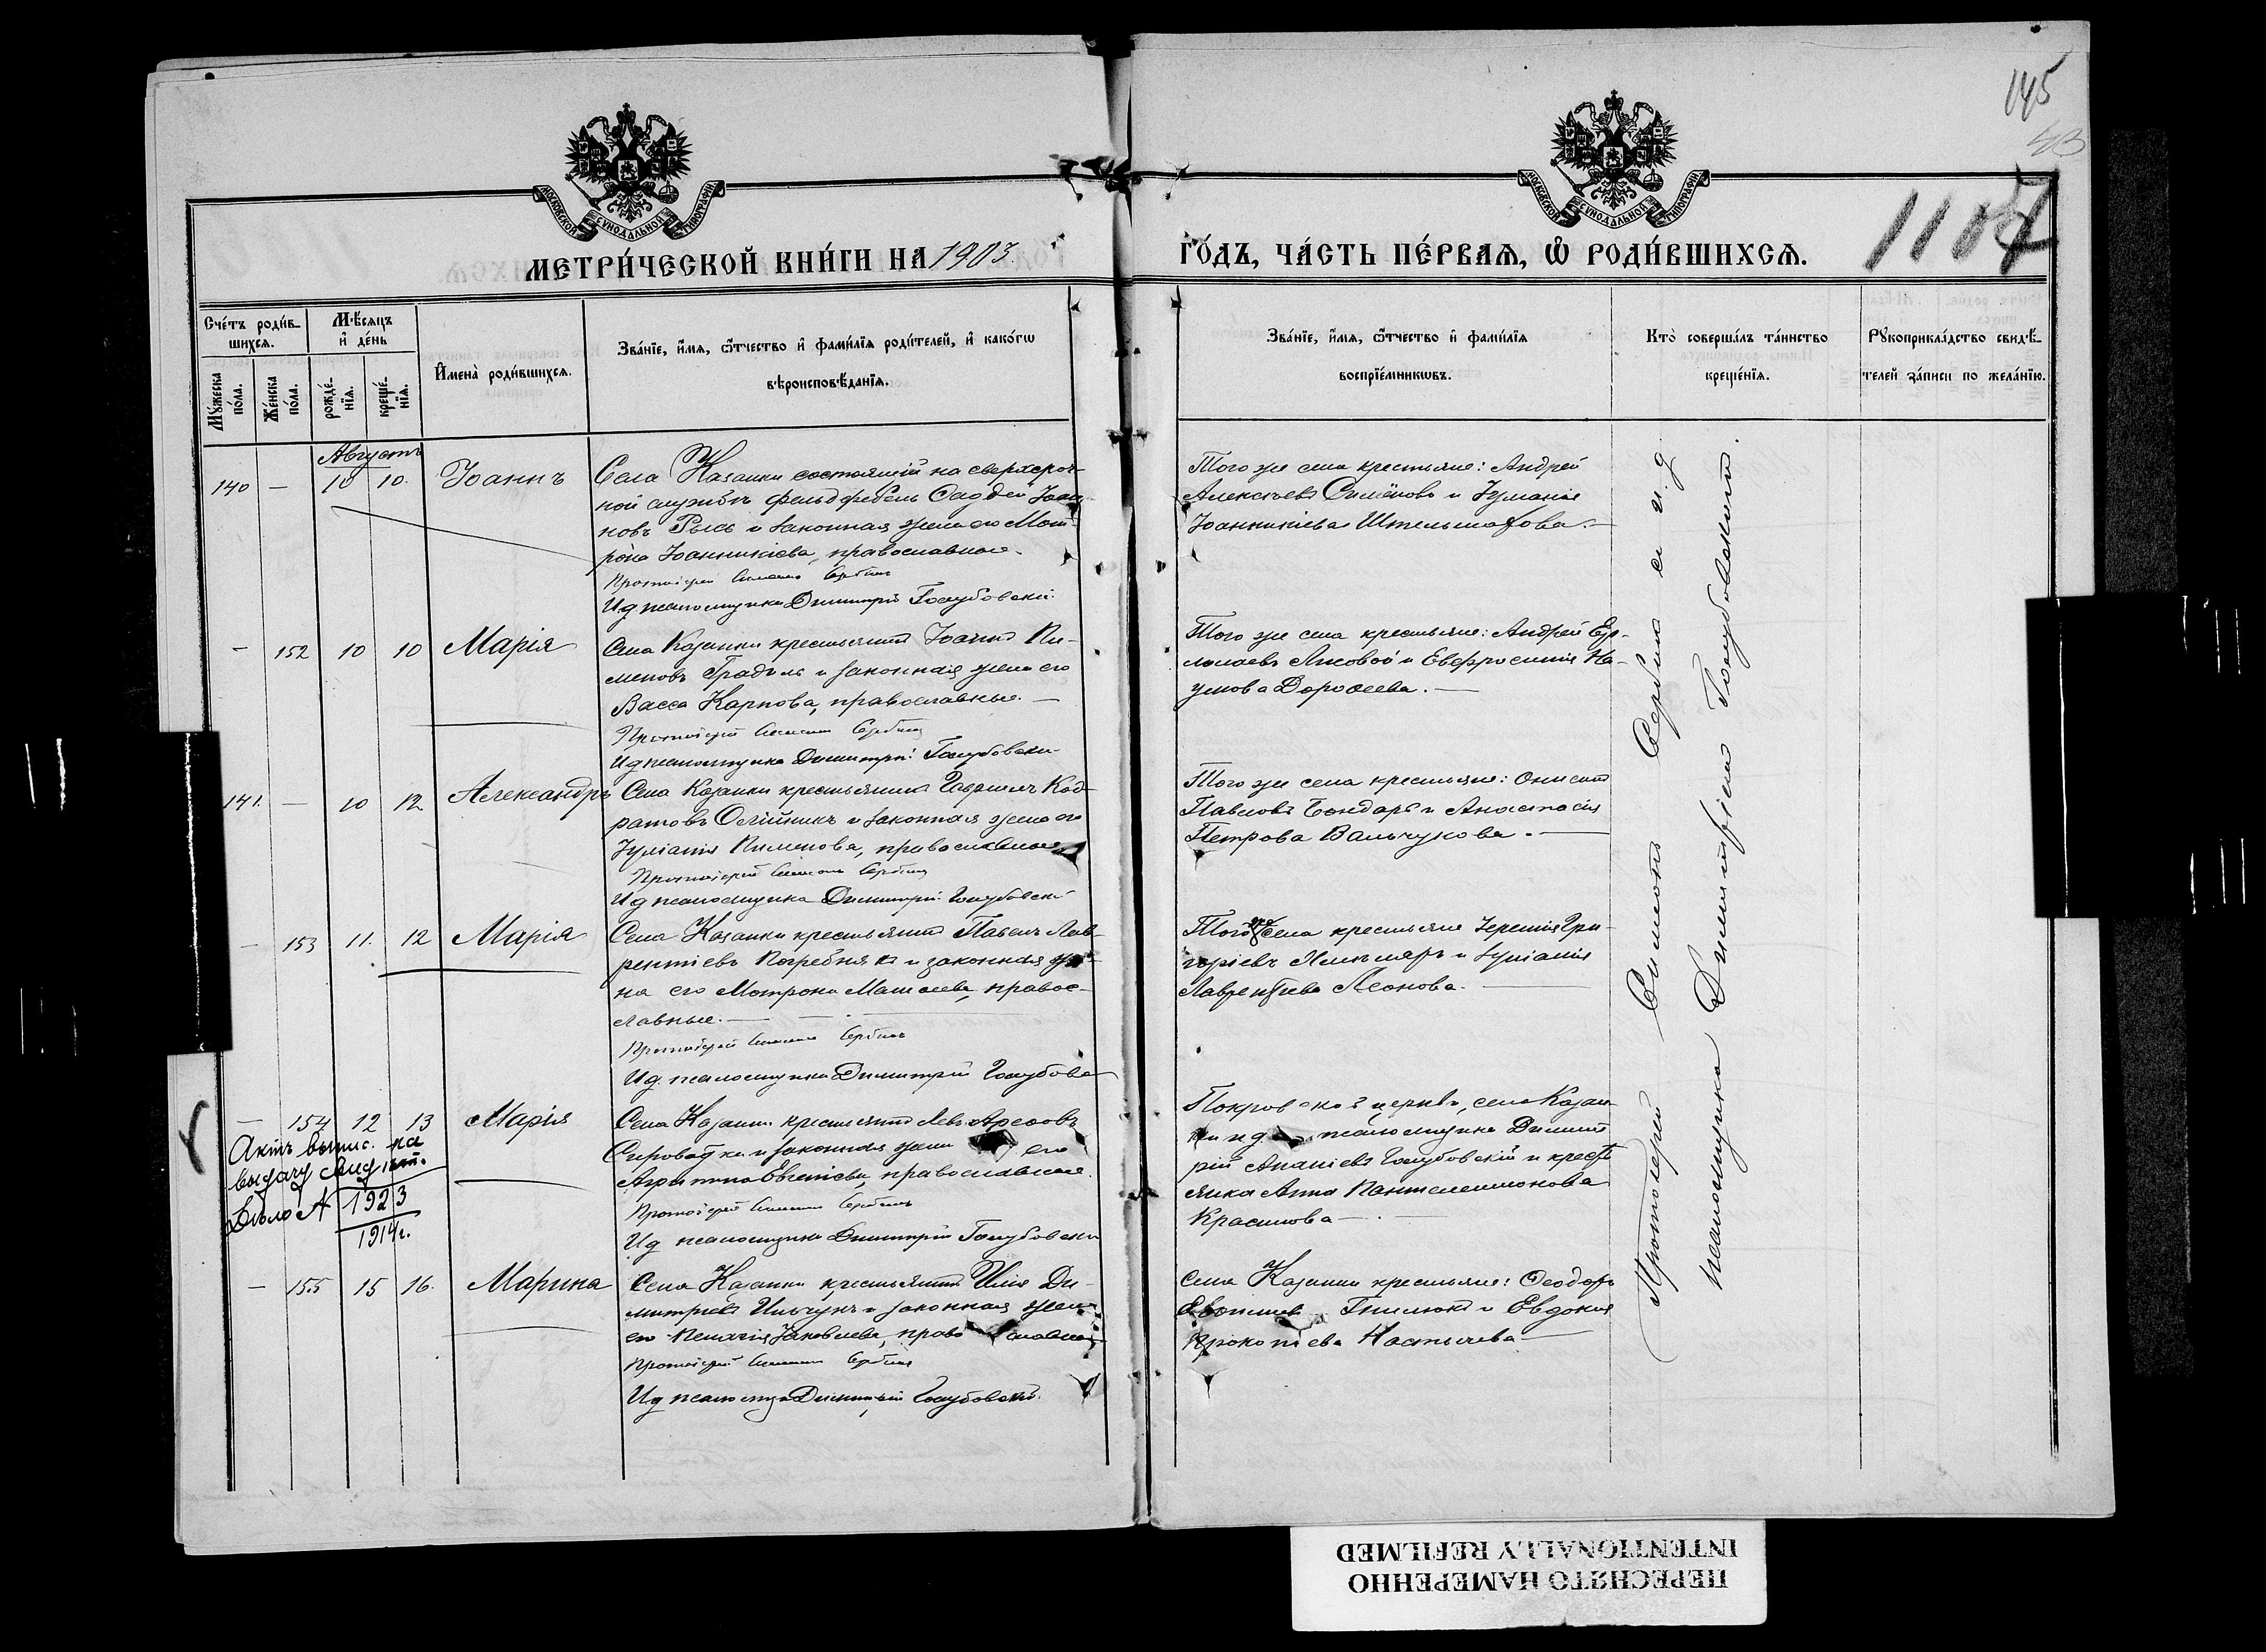 145
43
1107
МОСКОВСКОЙ СѴНОДАЛЬНОЙ ТИПОГРАФІИ
МОСКОВСКОЙ СѴНОДАЛЬНОЙ ТИПОГРАФІИ
МЕТРИ́ЧЕСКОЙ КНИ́ГИ НА 1903.
ГО́ДЪ, ЧА́СТЬ ПЕ́РВАЯ, Ѡ҆ РОДИ́ВШИХСѦ.
Сче́тъ роди́в-
шихсѧ.
Мѣ́сѧцъ
и҆ де́нь
Мꙋ́жеска
по́ла.
Же́нска
по́ла.
рожде́-
нїѧ.
креще́-
нїѧ.
И҆мена̀ роди́вшихсѧ.
Зва́нїе, и҆́мѧ, ѻ҆́тчество и҆ фамı́лїѧ роди́телей, и҆ како́гѡ
вѣроисповѣ́данїѧ.
Зва́нїе, и҆́мѧ, ѻ҆́тчество и҆ фамı́лїѧ
воспрїе́мникѡвъ.
Кто̀ соверша́лъ та́инство
креще́нїѧ.
Рꙋкоприкла́дство свидѣ́-
телей за́писи по жела́нїю.
Августъ
140 — 10 10. Іоаннъ
Села Казанки состоящій на сверхсроч-
ной службѣ фельдфебель Фаддей Іоан-
новъ Рысь и законная жена его Мот-
рона Іоанникіева, православные.
Протоіерей Симеонъ Сербинъ
И.д. псаломщика Димитрій Голубовскій.
Того же села крестьяне: Андрей
Алексѣевъ Симёновъ и Іуліанія
Іоанникіева Штельмахова. —
— 152 10 10 Марія
Села Казанки крестьянинъ Іоаннъ Пи-
меновъ Градиль и законная жена его
Васса Карпова, православные. —
Протоіерей Симеонъ Сербинъ
И.д. псаломщика Димитрій Голубовскій
Того же села крестьяне: Андрей Ер-
молаевъ Лисовой и Евфросинія На-
умова Дорофеева. —
141. — 10 12 Александръ
Села Казанки крестьянинъ Гавріилъ Код-
ратовъ Олійникъ и законная жена его
Іуліанія Пименова, православные
Протоіерей Симеонъ Сербинъ
И.д. псаломщика Димитрій Голубовскій
Того же села крестьяне: Онисимъ
Павловъ Бондарь и Анастасія
Петрова Вальчукова. —
— 153 11. 12 Марія
Села Казанки крестьянинъ Павелъ Лав-
рентіевъ Погребнякъ и законная же-
на его Мотрона Матѳеева, правос-
лавные. —
Протоіерей Симеонъ Сербинъ
И.д. псаломщика Димитрій Голубовскій
Того же села крестьяне Іеремія Гри-
горіевъ и Іуліанія
Лаврентіева Леонова. —
— 154 12 13 Марія
Актъ выпис. на
выдачу свид.
Дѣло № 1923
1914 г.
Села Казанки крестьянинъ Левъ
Сыроватка и законная жена его
Агриппина Евгеніева, православные
Протоіерей Симеонъ Сербинъ
И.д. псаломщика Димитрій Голубовскій
Покровской церкви, села Казан-
ки и.д. псаломщика Димит-
рій Ананіевъ Голубовскій и кресть
янка Анна Пантелеимонова
Красикова —
— 155 15 16. Марина
Села Казанки крестьянинъ Илія Ди-
митріевъ Ильчукъ и законная жена
его Пелагія Іаковлева, православные
Протоіерей Симеонъ Сербинъ
И.д. псаломщ. Димитрій Голубовскій.
Села Казанки крестьяне: Ѳеодоръ
и Евдокія
Прокопіева —
Протоіерей Симеонъ Сербинъ съ и.д.
псаломщика Димитріемъ Голубовскимъ.
ПЕРЕСНЯТО НАМЕРЕННО
INTENTIONALLY REFILMED